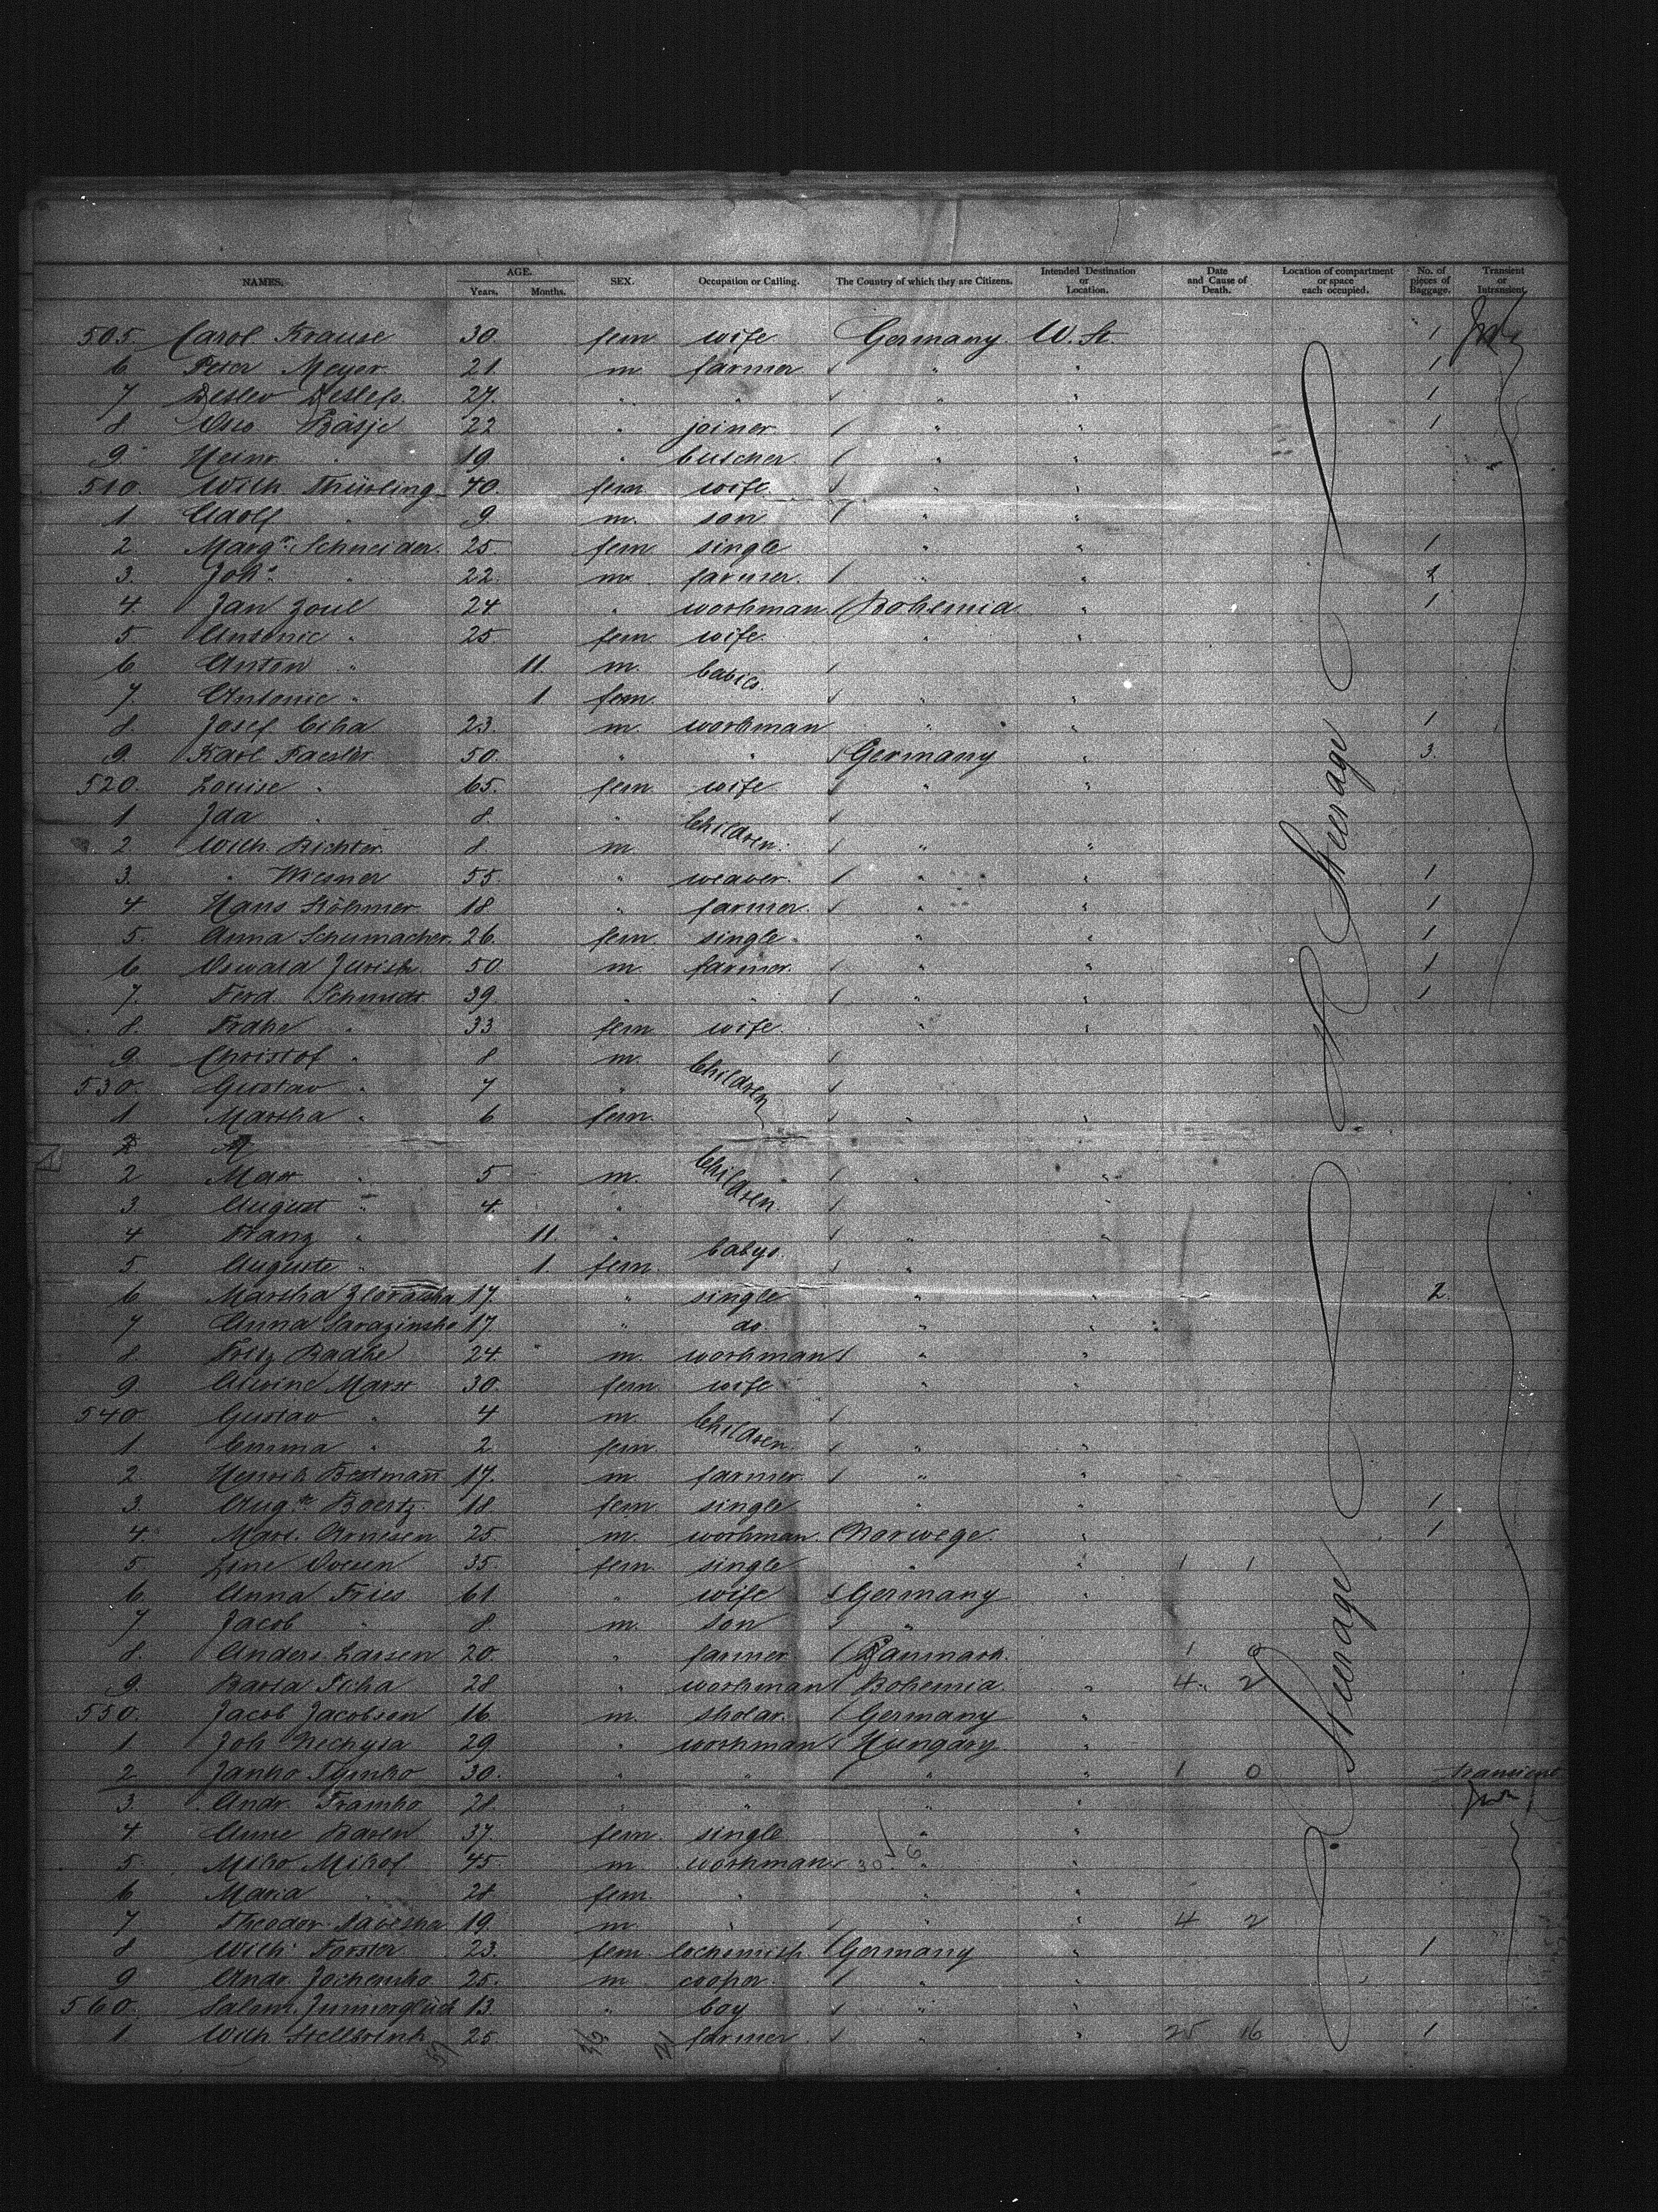 NAMES. AGE. Years. Months. SEX. Occupation or Calling. The Country of which they are Citizens. Intended Destination or Location. Date and Cause of Death. Location of compartment or space each occupied. No. of pieces of Baggage. Transient or Intransient.
505. Carol Krause 30. fem wife Germany. W. St. 1
6 Peter Meyer 21. m. farmer " " 1
7 Detlev Detlefs. 27. " " " " 1
8 Otto 22 " joiner. " " 1
9. Heinr. " 19 " butcher. " "
510. Wilh. Thürling 40. fem. wife. " "
1. Adolf " 9. m. son " "
2. Margr. Schneider. 25. fem single " " 1
3. Joh. " 22. m. farmer. " "
4. Jan Zoul 24 " workman Bohemia " 1
5 Antonie " 25 fem. wife. " "
6 Anton " 11. m. babies.
7. Antonie " 1. fem. "
8. Josef Ciha 23. m. workman " " 1
9. Karl Faesler 50. " " Germany " 3.
520. Louise " 65. fem. wife " "
1 Ida " 8. " Children.
2. Wilh. Richter. 8 m. " "
3. " Wiesner 55. " weaver. " " 1
4. Hans 18 " farmer. " " 1
5. Anna Schumacher. 26. fem. single. " " 1
6 Oswald 50 m. farmer. " " 1
7. Ferd. Schmidt 39. " " " " 1
8. " 33 fem. wife. " "
9. Christof " 8 m. Children
530. Gustav " 7 "
1 Martha " 6 fem. " "
2 Max " 5 m. Children " "
3. August " 4. " "
4 Franz " 11. " babys. " "
5. Auguste " 1. fem. "
6 Martha 17. " single " " 2
7 Anna 17. " do. " "
8. Fritz Radke 24. m. workman " "
9. Alwine Marx 30. fem. wife " "
540 Gustav " 4 m. Children.
1. Emma " 2. fem. " "
2. Henrik Bestmann 17. m. farmer. " "
3. Augte. Boertz. 18 fem. single " " 1
4. Mart. Arnesen 25. m. workman. Norwege. " 1
5. Line 35. fem. single " " 1 1
6. Anna Fries 61. " wife Germany "
7 Jacob " 8. m. son "
8. Anders. Larsen 20. " farmer Danmark. 1
9. 28 " workman Bohemia " 4 2
550. Jacob Jacobsen 16 m. sholar. Germany "
1 Joh 29 " workman Hungary "
2. Janko Tymko 30. " " " " 1 0 transient
3. Andr. 28. " " " "
4. Anne 37. fem. single. " "
5 Miko Mihof 45 m. workman. 30. 6 " "
6 Maria " 28 fem. " " "
7. Theodor 19. m. " " " 4 2
8 Wilh. Forster 23. fem. Germany " 1
9 Andr. 25. m. cooper. " "
560. Salom. 13. " boy " "
1 Wilh. Stellbrink 25. farmer. " " 25 16 1
Steerage
Steerage